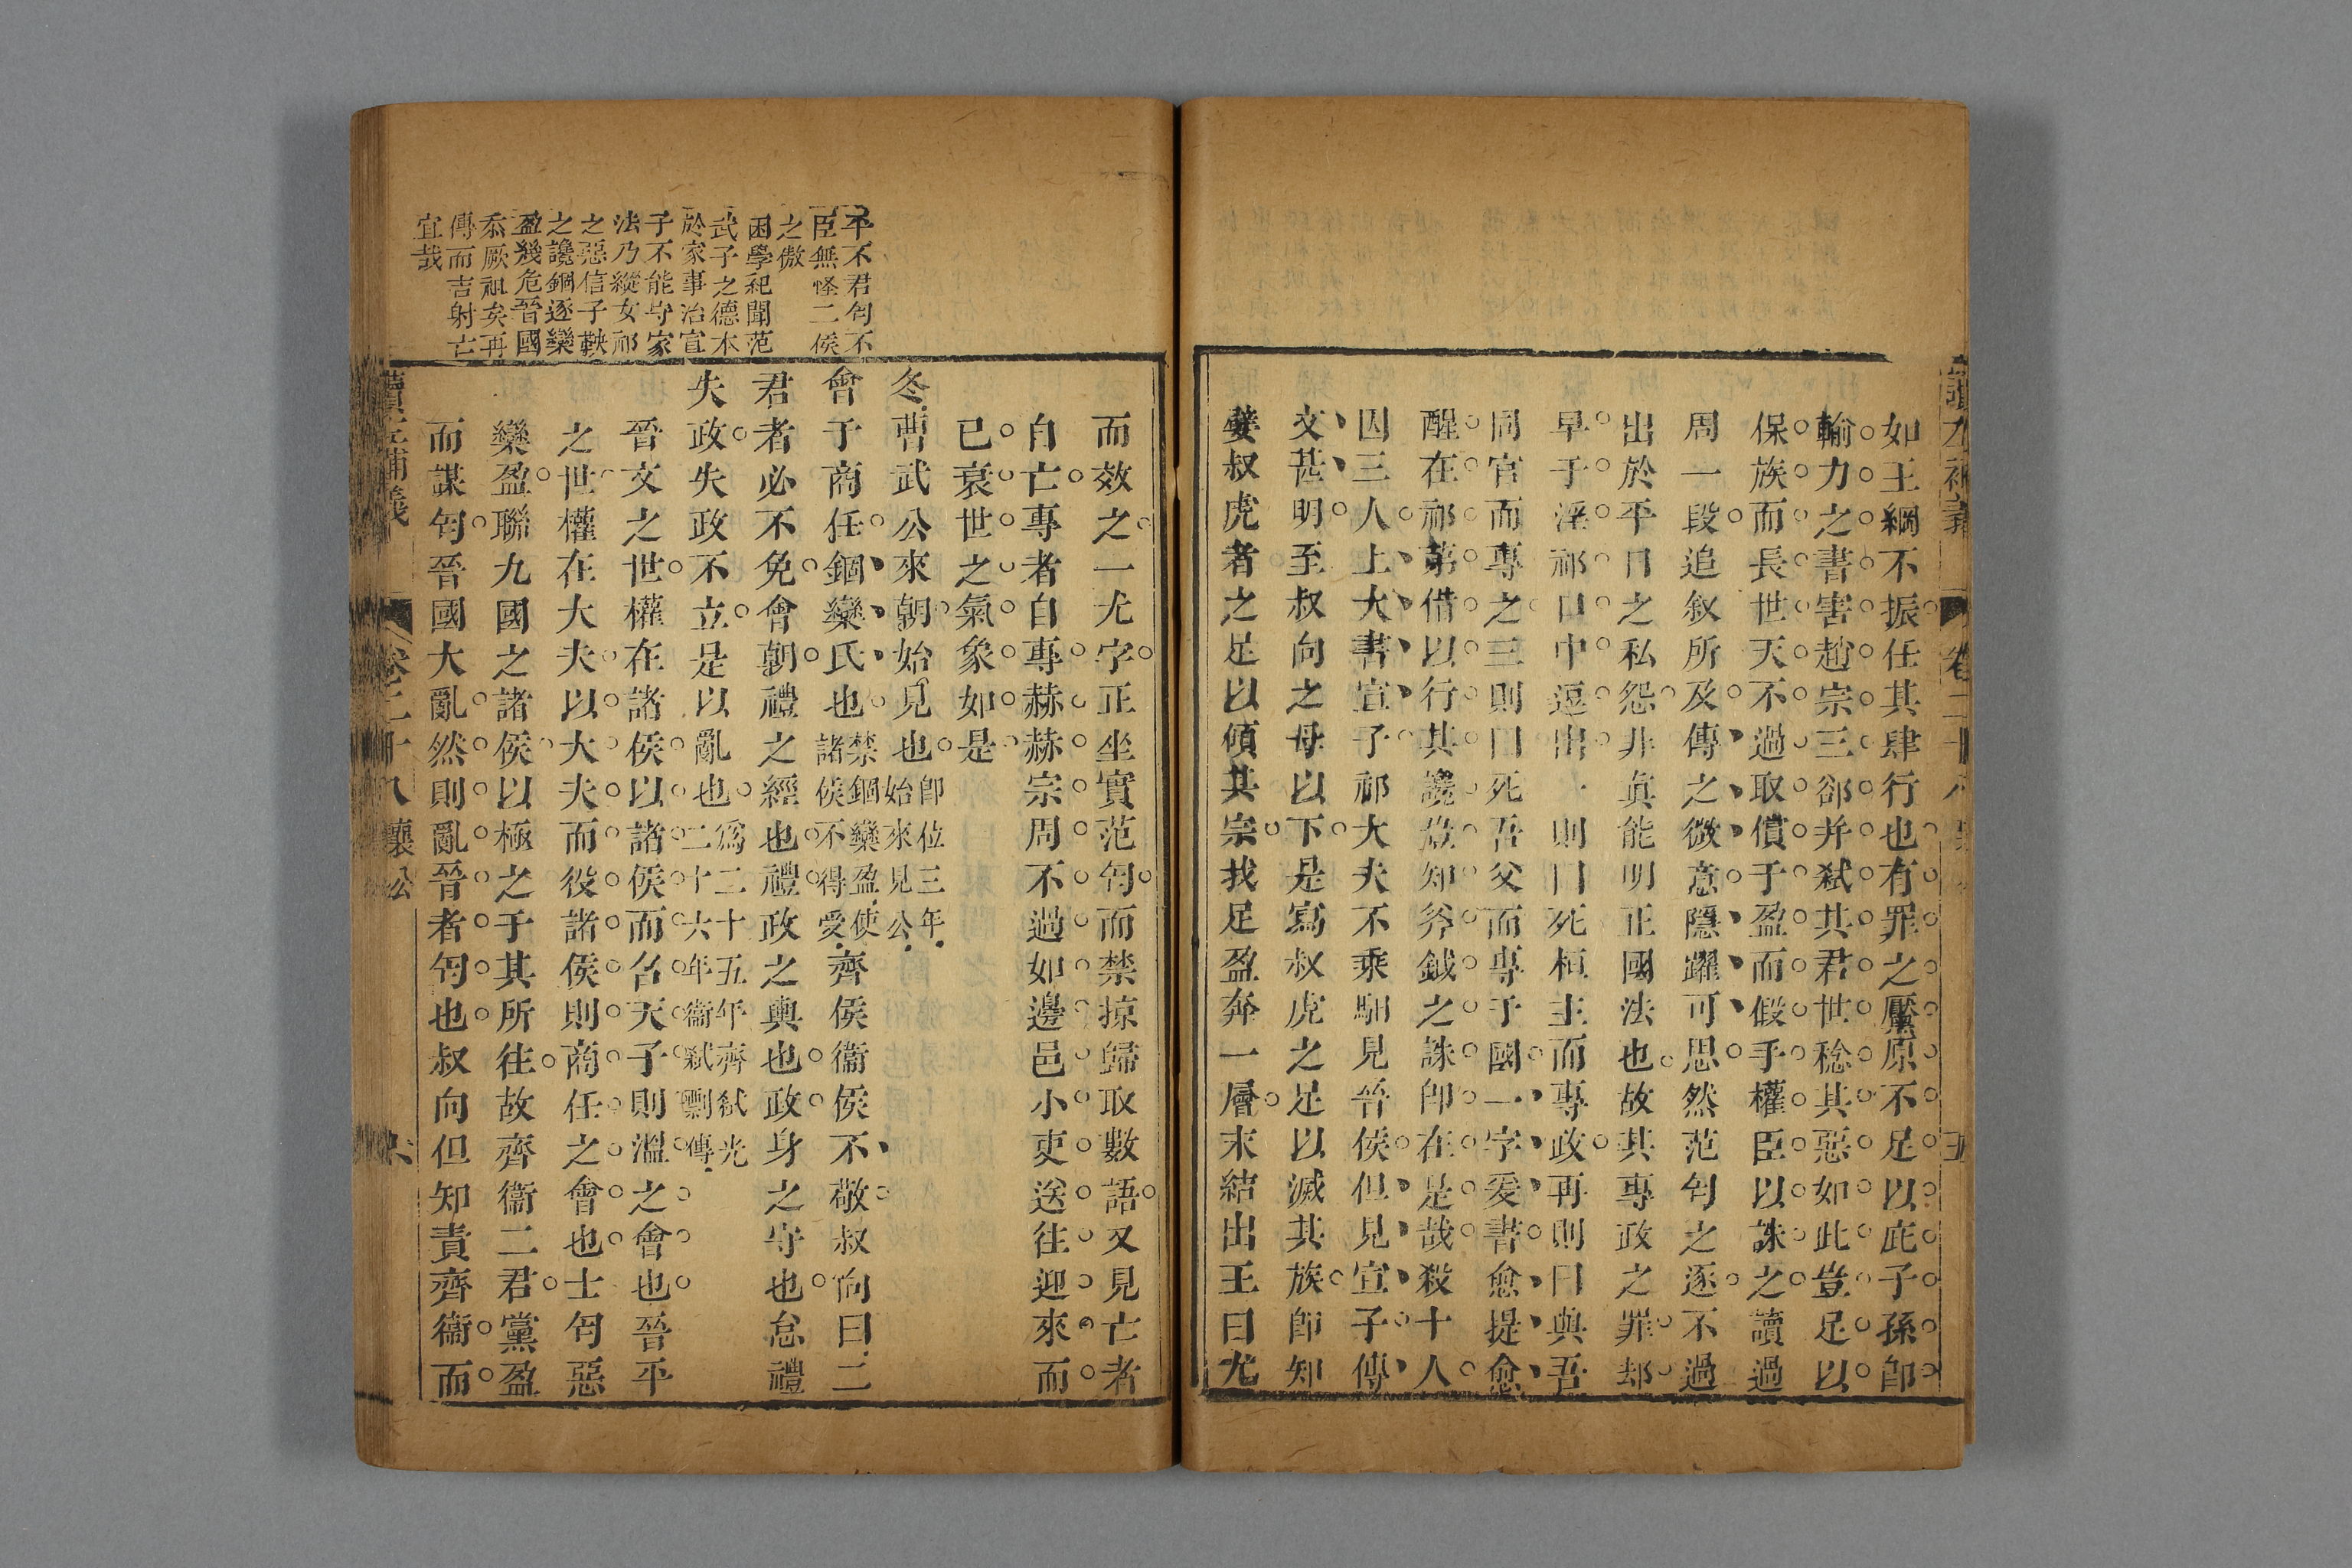 如王綱不振任其肆行也有罪之黶原不足以庇子孫卽
輸力之書害趙宗三郤弁弑其君世稔其惡如此豈足以
保族而長世天不過取償于盈而假手權臣以誅之讀過
周一段追敘所及傳之微意隱躍可思然范匄之逐不過
出於平日之私怨非真能明正國法也故其專政之罪却
早于淫祁口中逗出一則曰死桓主而專政再則曰與吾
同官而專之三則曰死吾父而專于國一字爰書愈提愈
醒在祁第借以行其讒豈知斧鉞之誅卽在是哉殺十人
囚三人上大書宣子祁大夫不乘馹見晉侯但見宣子傳
文甚明至叔向之母以下是寫叔虎之足以滅其族卽知
嬖叔虎者之足以傾其宗找足盈奔一層末結出王曰尤
而效之一尤字正坐實范匄而禁掠歸取數語又見亡者
自亡專者自專赫赫宗周不過如邊邑小吏送往迎來而
已衰世之氣象如是
冬曹武公來朝始見也卽位三年始來見公
會于商任錮欒氏也禁錮欒盈使諸侯不得受齊侯衞侯不敬叔向曰二
君者必不免會朝禮之經也禮政之輿也政身之守也怠禮
失政失政不立是以亂也爲二十五年齊弑光二十六年衞弑剽傳
晉文之世權在諸侯以諸侯而召天子則溫之會也晉平
之世權在大夫以大夫而役諸侯則商任之會也士匄惡
欒盈聯九國之諸侯以極之于其所往故齊衞二君黨盈
而謀匄晉國大亂然則亂晉者匄也叔向但知責齊衞而
平不君匄不
臣無怪二侯
之傲
困學紀聞范
武子之德本
於家事治宣
子不能守家
法乃縱女祁
之惡信子鞅
之讒錮逐欒
盈幾危晉國
忝厥祖矣再
傳而吉射亡
宜哉
讀左補義
卷二十八 襄公